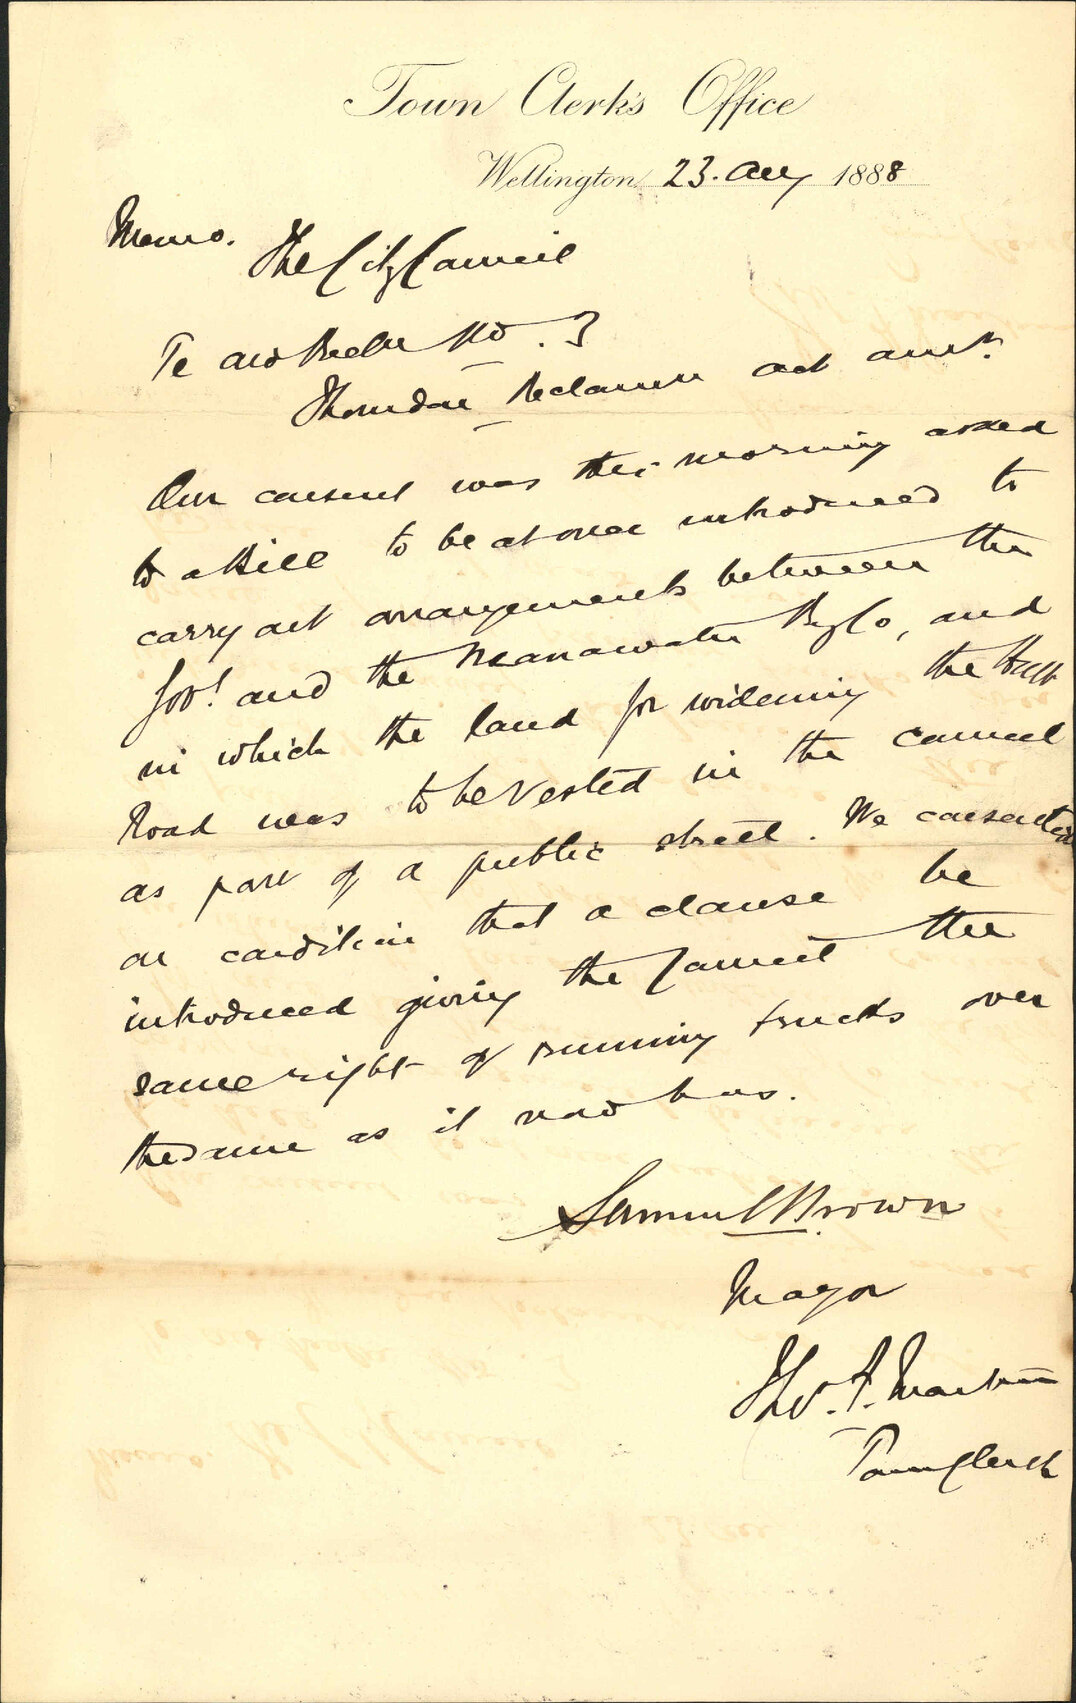 Town Clerk's Office
Wellington 23. Aug 1888
Memo. The City Council
Te Aro Reclm No. 3
Thorndon Reclamn Act Amt.
Our consent was this morning asked
to a Bill to be at once introduced to
carry out arrangements between the
Govt. and the Manawatu Ry Co, and
in which the land for widening the Hutt
Road was to be vested in the Council
as part of a public street. We consented
on condition that a clause be
introduced giving the Council the
same right of running trucks over
the same as it now has.
Samuel Brown
Mayor
Tho. F. Martin
Town Clerk